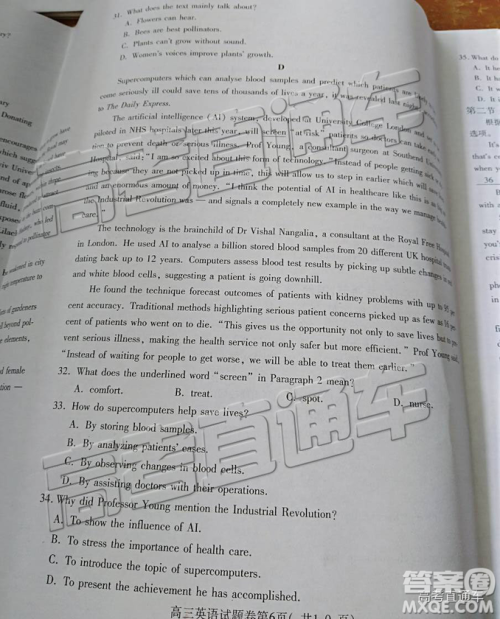 31. What does the text mainly talk about?
A. Flowers can hear.
B. Bees are best pollinators.
C. Plants can't grow without sound.
D. Women's voices improve plants' growth.
D
Supercomputers which can analyse blood samples and predict which patients are
come seriously ill could save tens of thousands of lives a year, it was revealed last night
to The Daily Express.
The artificial intelligence (AI) system, developed at University College London and
piloted in NHS hospitals later this year, will screen "at risk" patients so doctors can
tion to prevent death or serious illness. Prof Young, a consultant surgeon at Southend
Hospital, said: "I am so excited about this form of technology. Instead of people getting
ing because they are not picked up in time, this will allow us to step in earlier which will
and an enormous amount of money. "I think the potential of AI in healthcare like this is
the Industrial Revolution was — and signals a completely new example in the way we manage
care."
The technology is the brainchild of Dr Vishal Nangalia, a consultant at the Royal Free
in London. He used AI to analyse a billion stored blood samples from 20 different UK
dating back up to 12 years. Computers assess blood test results by picking up subtle changes
and white blood cells, suggesting a patient is going downhill.
He found the technique forecast outcomes of patients with kidney problems with up to 95
cent accuracy. Traditional methods highlighting serious patient concerns picked up as few as
cent of patients who went on to die. "This gives us the opportunity not only to save lives but to
vent serious illness, making the health service not only safer but more efficient." Prof Young
"Instead of waiting for people to get worse, we will be able to treat them earlier."
32. What does the underlined word "screen" in Paragraph 2 mean?
A. comfort. B. treat. C. spot. D. nurse.
33. How do supercomputers help save lives?
A. By storing blood samples.
B. By analyzing patients' cases.
C. By observing changes in blood cells.
D. By assisting doctors with their operations.
34. Why did Professor Young mention the Industrial Revolution?
A. To show the influence of AI.
B. To stress the importance of health care.
C. To introduce the topic of supercomputers.
D. To present the achievement he has accomplished.
高三英语试题卷第6页(共10页)
35. What do
A. It
B. It
C. It
D. It
第二节
选项。
It's
that
when
36
with
you
Donating
encourages
which
fluid,
in city
temperature to
of gardeners
beyond pol-
elements,
female
tion —
高考直通车
高考直通车
高考直通车
答案圈
MXQE.COM